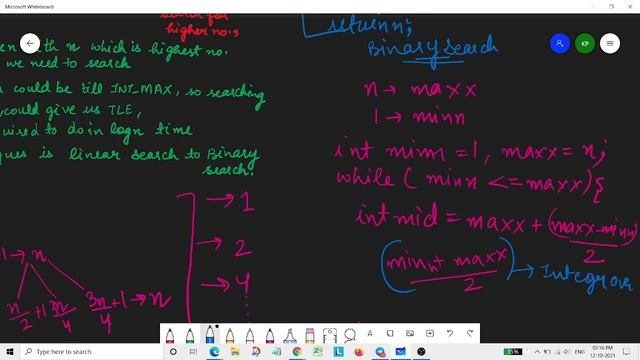 Microsoft Whiteboard
search for
higher no.s
en th n which is highest no.
we need to search
could be till INT_MAX, so searching
could give us TLE,
uired to do in logn time
ques is linear search to Binary
search.
1 → n
n/2 + 1
3n/4
3n/4 + 1 → n
→ 1
→ 2
→ 4
return n;
Binary search
n → maxx
1 → minn
int minn = 1, maxx = n;
while ( minn <= maxx) {
int mid = maxx + (maxx - minn)/2
(minn + maxx / 2) → Integer ov
KP
Type here to search
35%
ENG
02:16 PM
12-10-2021